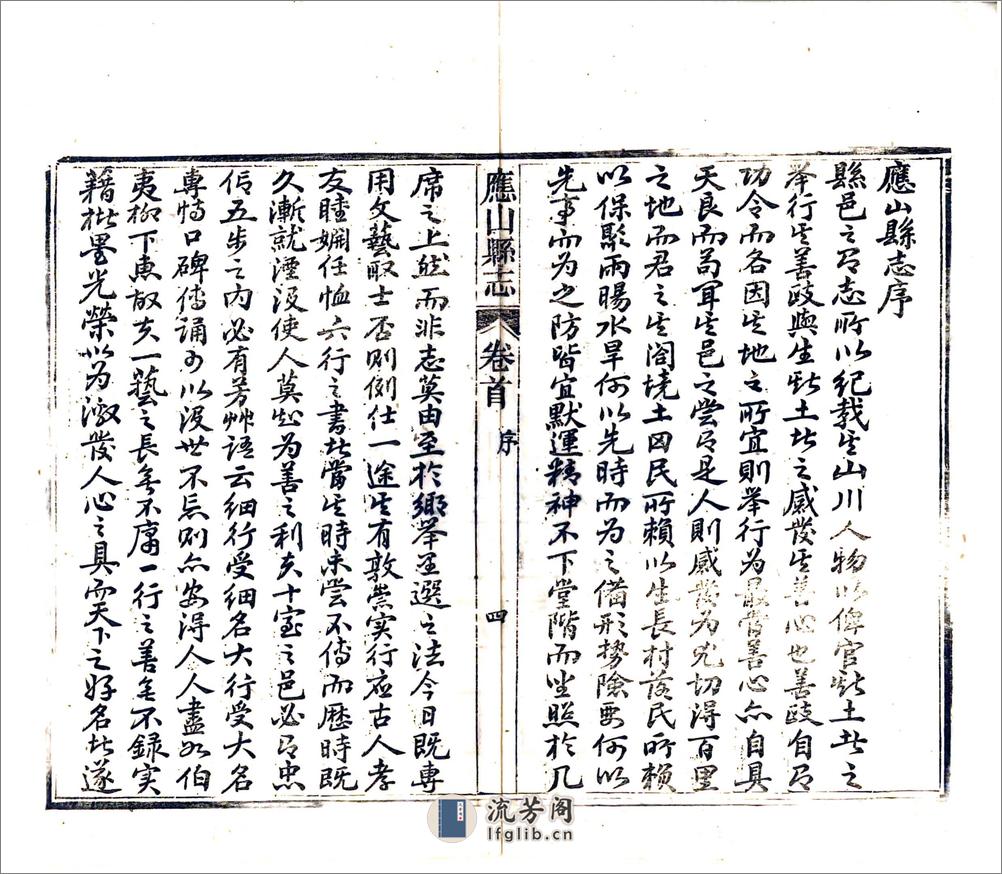 應山縣志序
縣邑之有志所以紀載其山川人物以俾官斯土者之
舉行其善政與生斯土者之感發其善心也善政自有
功令而各因其地之所宜則舉行為最當善心亦自具
天良而苟耳其邑之嘗有是人則感發為尤切得百里
之地而君之其闔境土田民所賴以生長村落民所賴
以保聚雨暘水旱何以先時而為之備形勢險要何以
先事而為之防皆宜默運精神不下堂階而坐照於几
應山縣志
卷首
序
四
席之上然而非志莫由至於鄉舉里選之法今日既專
用文藝取士否則例仕一途其有敦崇實行應古人孝
友睦婣任恤六行之書者當其時未嘗不傳而歷時既
久漸就湮沒使人莫知為善之利夫十室之邑必有忠
信五步之內必有芳艸語云細行受細名大行受大名
專恃口碑傳誦可以沒世不忘則亦安得人人盡如伯
夷柳下惠故夫一藝之長無不庸一行之善無不錄實
藉此墨光榮以為激發人心之具而天下之好名者遂
流芳阁
lfglib.cn